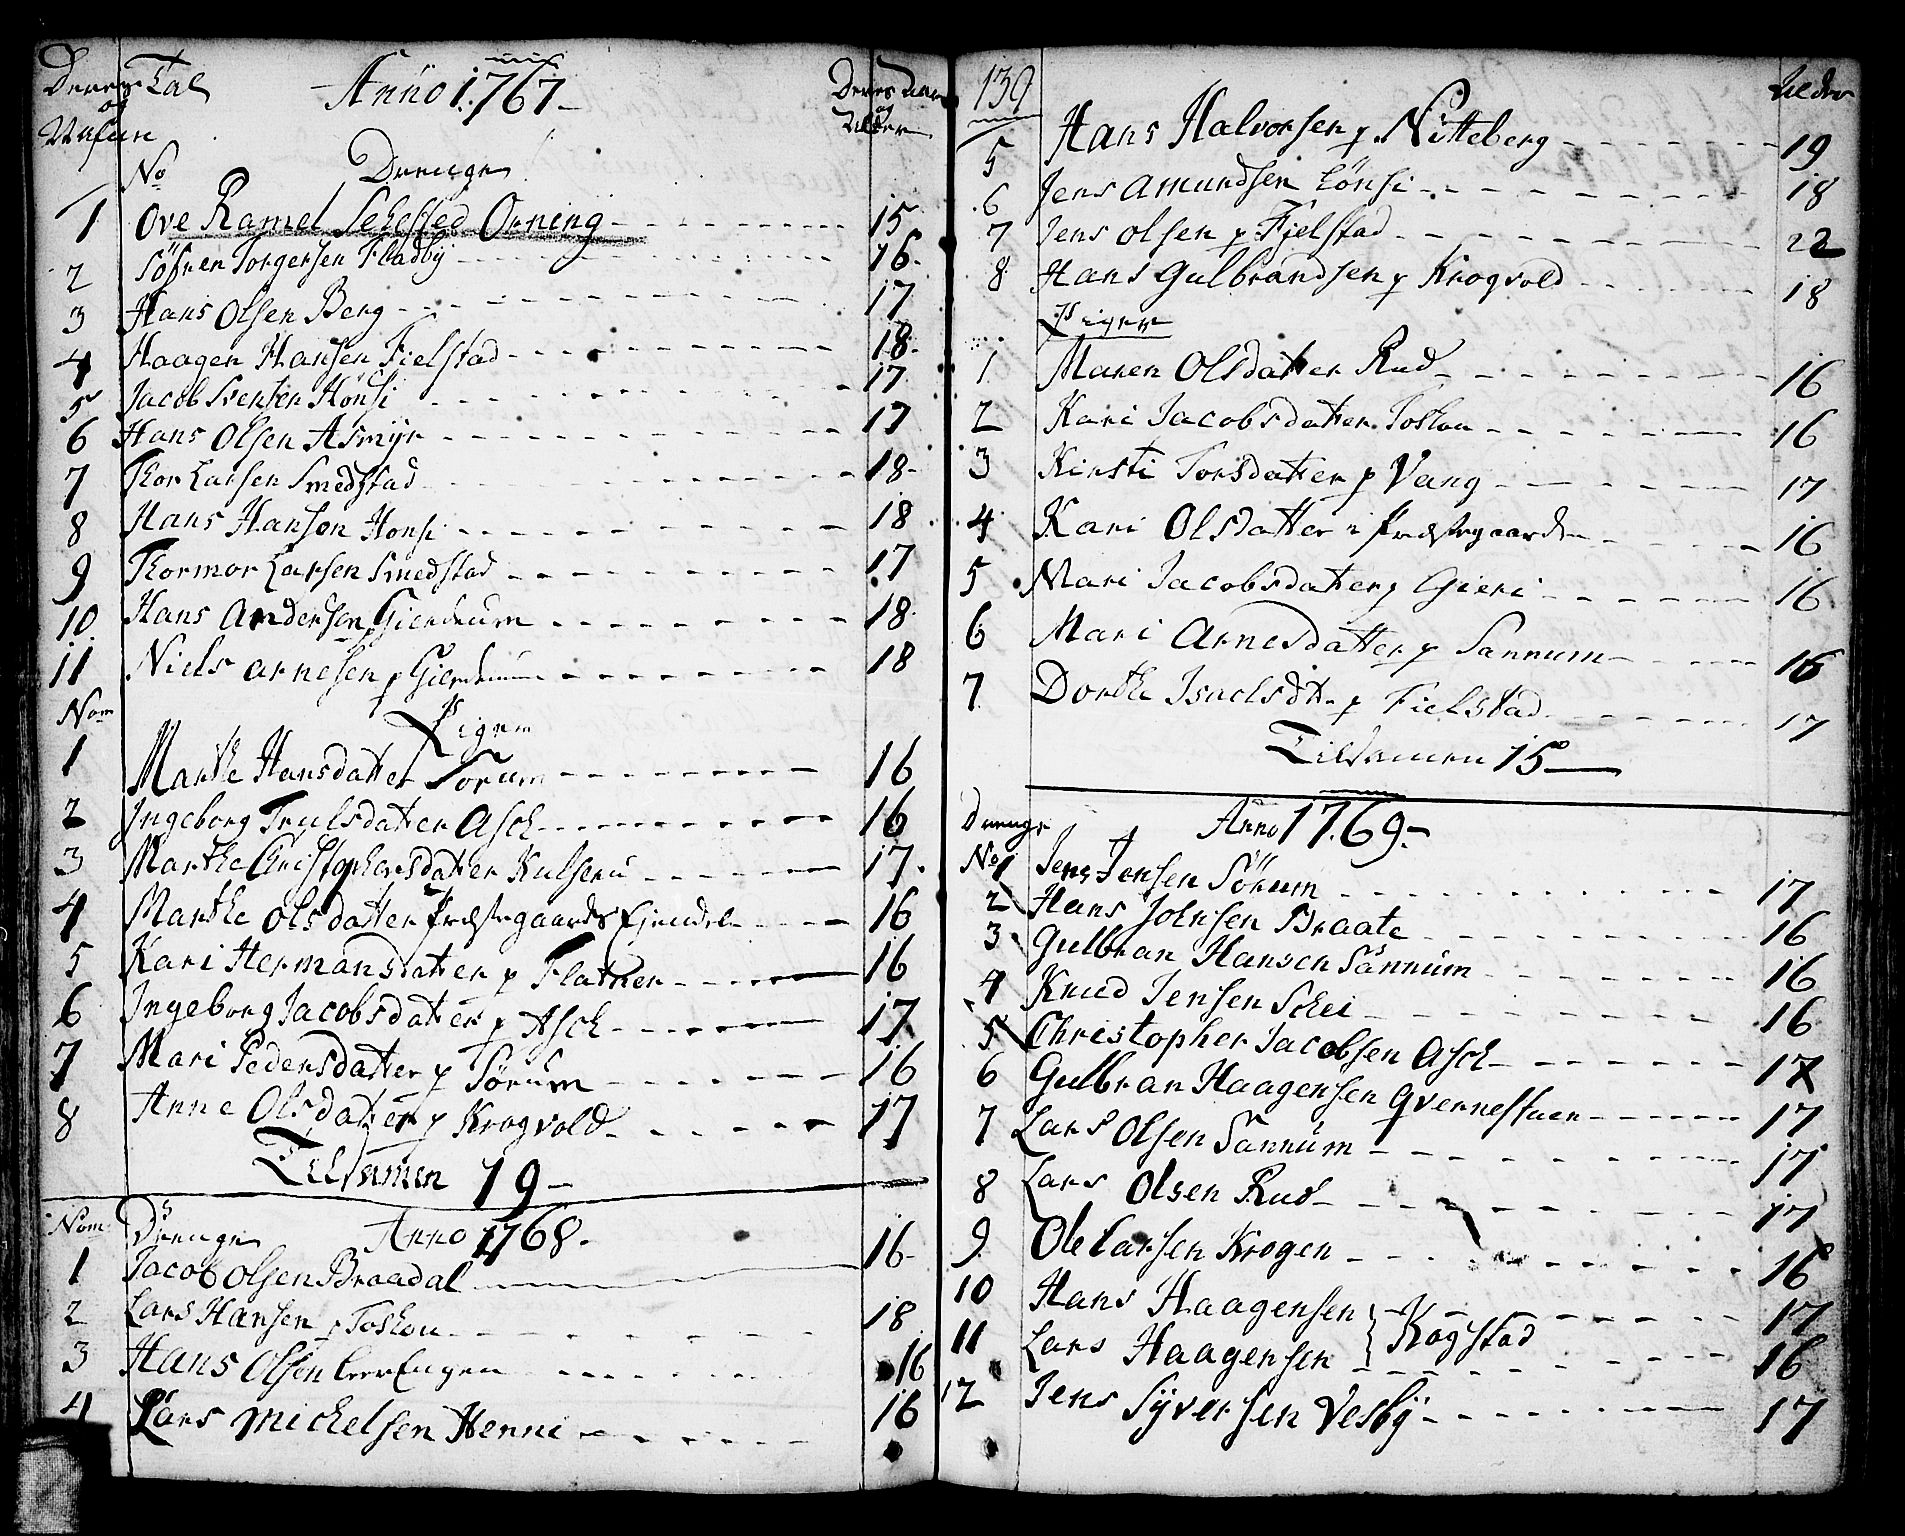 Deres Tal Anno 1767 Deres Aar
og og
Nafne Alder
No Drenge
1 Ove Ramel Sehested Orning 15
2 Söfren Torgersen Fladby 16
3 Hans Olsen Berg 17
4 Haagen Hansen Fielstad 18
5 Jacob Svensen Hönsi 17
6 Hans Olsen Asmyr 17
7 Thor Larsen Smedstad 18
8 Hans Hanson Honsi 18
9 Thormor Larsen Smedstad 17
10 Hans Andersen p Gierdrum 18
11 Niels Arnesen p Gierdrum 18
Nom Piger
1 Marthe Hansdatter Sorum 16
2 Ingeborg Trulsdatter Asch 16
3 Marthe Christophersdatter Kulserud 17
4 Marthe Olsdatter Præstegaards Ejendel 16
5 Kari Hermansdatter p Flatner 16
6 Ingeborg Jacobsdatter p Asch 17
7 Mari Pedersdatter p Sörum 16
8 Anne Olsdatter p Krogvold 17
Tilsamen 19
Nom Drenge Anno 1768
1 Jacob Olsen Braadal 16
2 Lars Hansen p Toshou 18
3 Hans Olsen LeerEngen 16
4 Lars Michelsen Henni 16
139 Alder
5 Hans Halvorsen p Nitteberg 19
6 Jens Amundsen Lönsi 18
7 Jens Olsen p Fjelstad 22
8 Hans Gulbrandsen p Krogvold 18
Piger
1 Maren Olsdatter Rud 16
2 Kari Jacobsdatter Toshou 16
3 Kirsti Torsdatter p Vang 17
4 Kari Olsdatter i Præstegaarden 16
5 Mari Jacobsdatter p Gieri 16
6 Mari Arnesdatter p Sannum 16
7 Dorthe Israelsdt p Fielstad 17
Tilsamen 15
Drenge Anno 1769
No 1 Jens Jensen Sörum 17
2 Hans Johnsen Braate 16
3 Gulbran Hansen Sannum 16
4 Knud Jensen Schei 16
5 Christopher Jacobsen Asch 17
6 Gulbran Haagensen Qvernestuen 17
7 Lars Olsen Sannum 17
8 Lars Olsen Rud 17
9 Ole Larsen Krogen 16
10 Hans Haagensen } Kogstad 17
11 Lars Haagensen 16
12 Jens Syversen Vesby 17